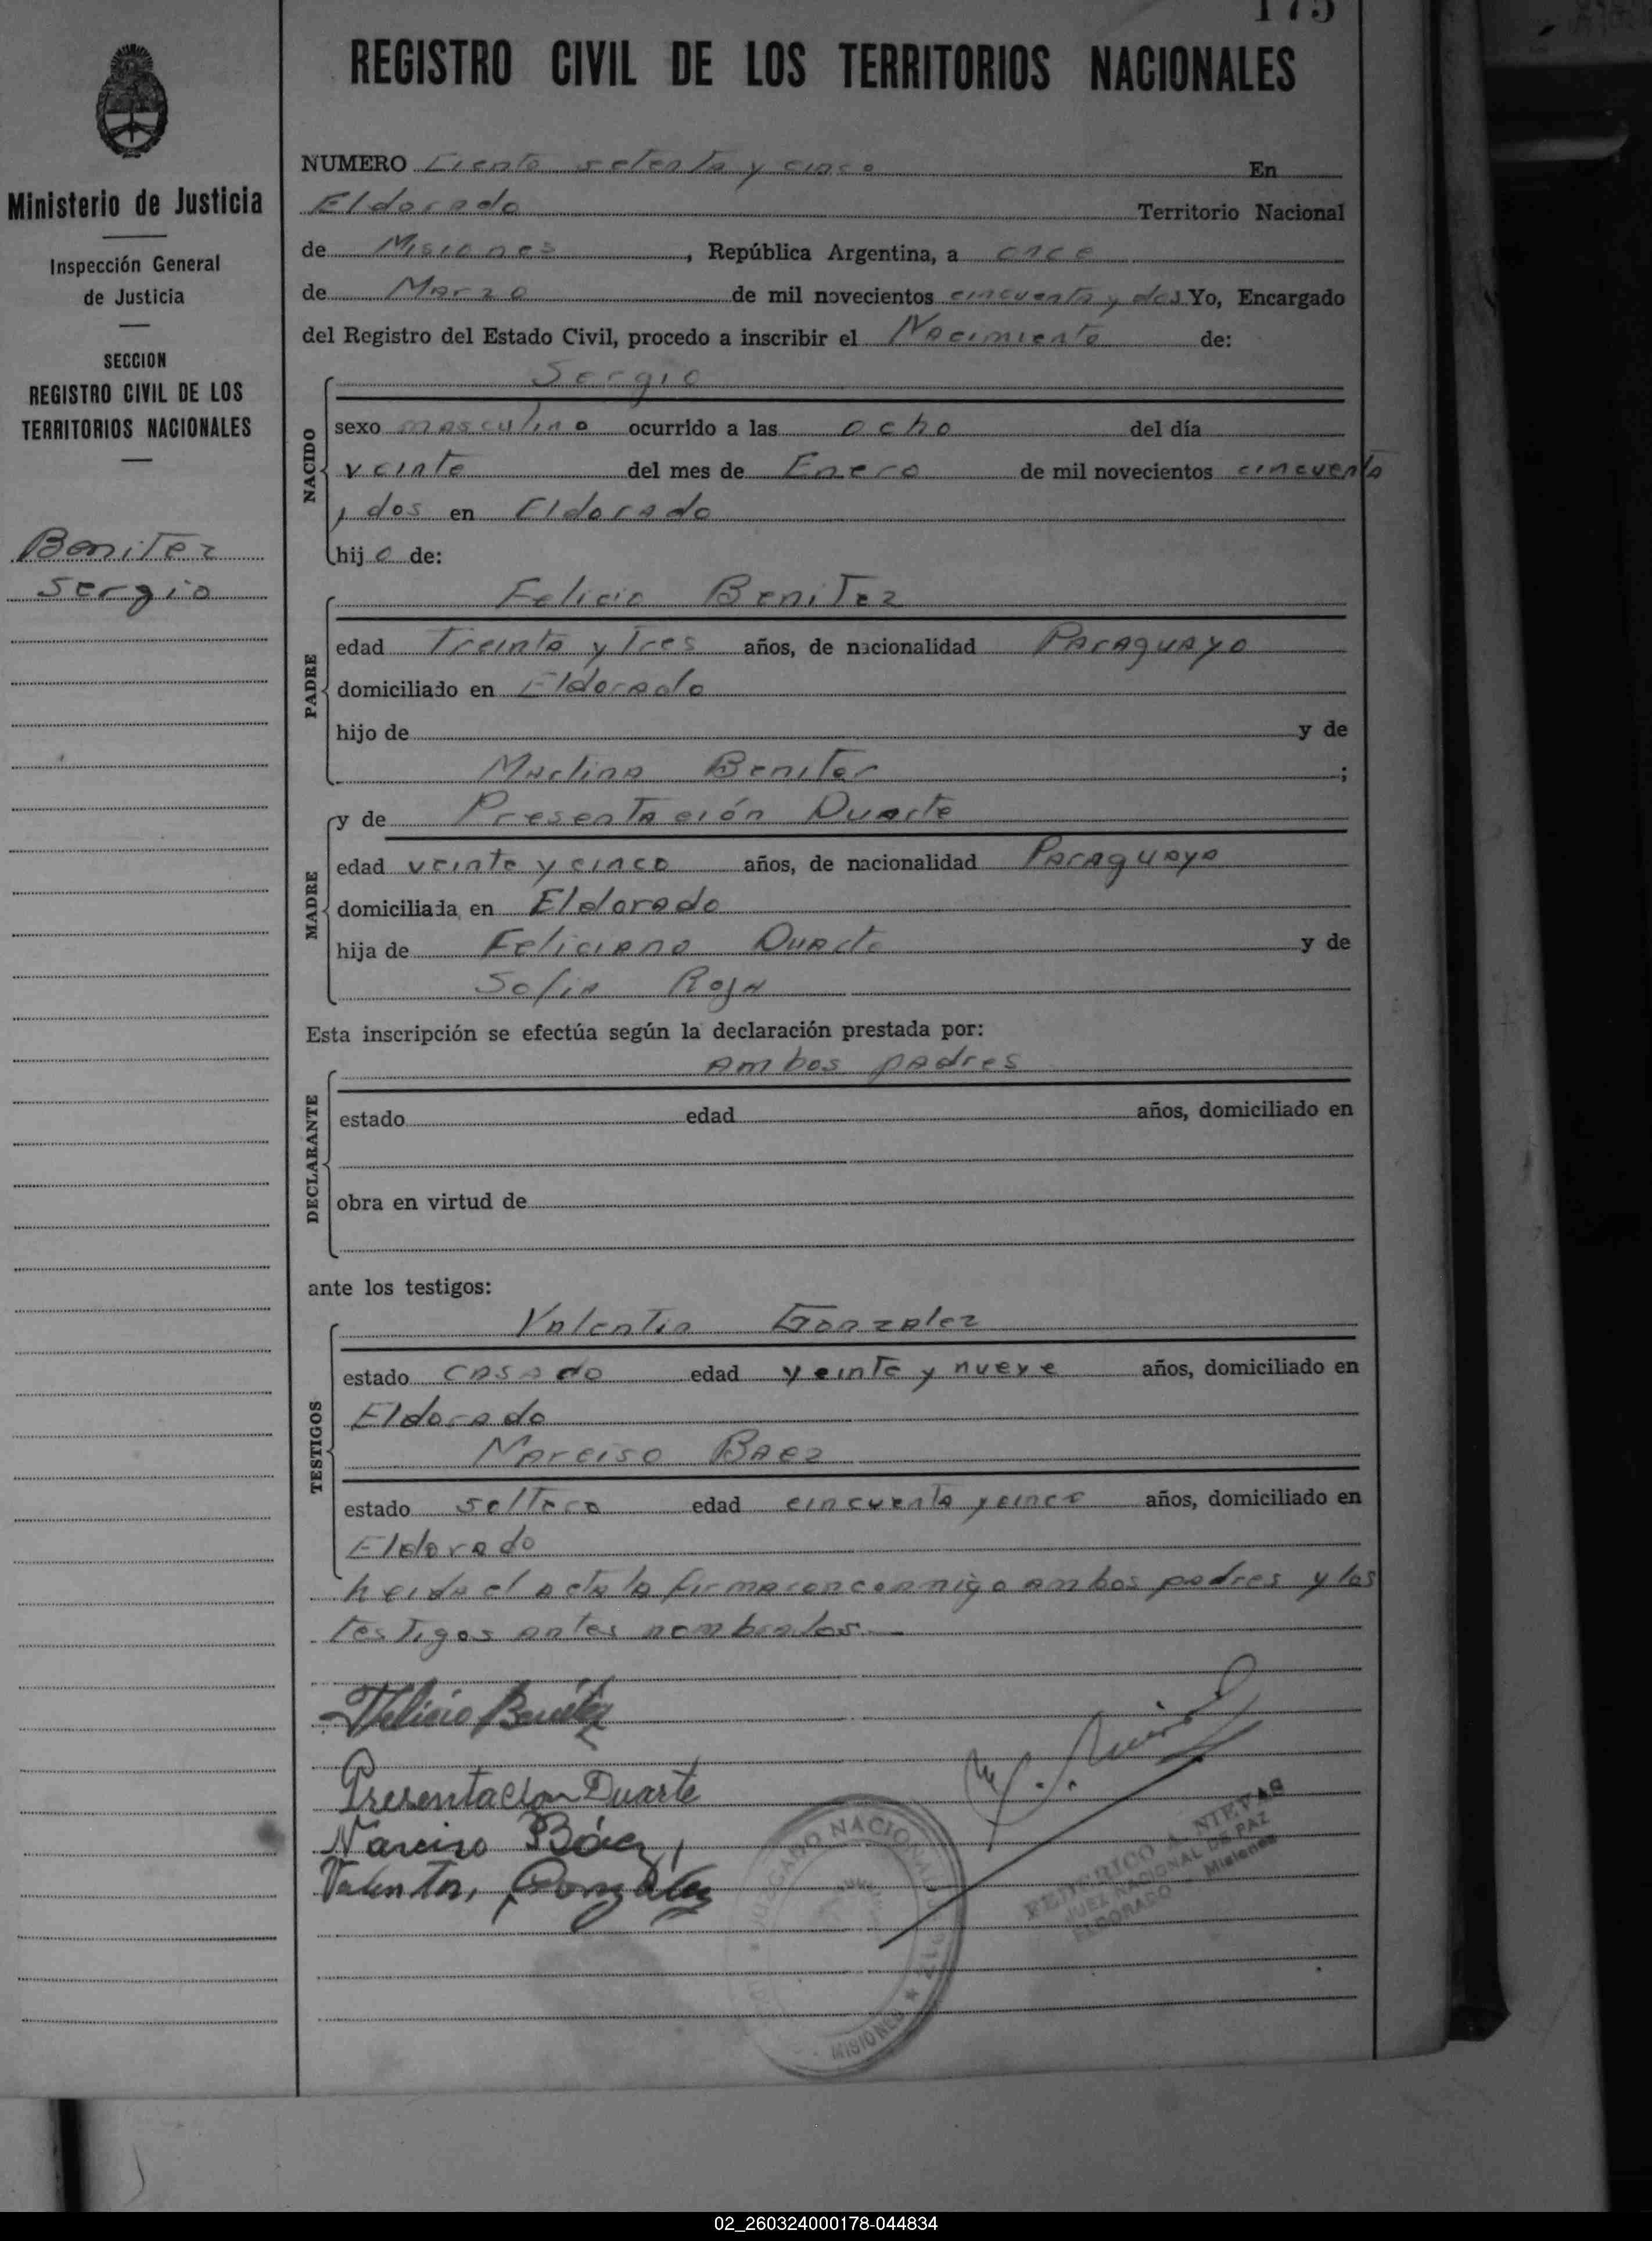 175
REGISTRO CIVIL DE LOS TERRITORIOS NACIONALES
Ministerio de Justicia
Inspección General
de Justicia
SECCION
REGISTRO CIVIL DE LOS
TERRITORIOS NACIONALES
Benitez
Sergio
NUMERO Ciento setenta y cinco En
Eldorado Territorio Nacional
de Misiones, República Argentina, a once
de Marzo de mil novecientos cincuenta y dos Yo, Encargado
del Registro del Estado Civil, procedo a inscribir el Nacimiento de:
NACIDO
Sergio
sexo masculino ocurrido a las ocho del día
veinte del mes de Enero de mil novecientos cincuenta
y dos en Eldorado
hijo de:
PADRE
Felicio Benitez
edad Treinta y Tres años, de nacionalidad Paraguayo
domiciliado en Eldorado
hijo de y de
Benitez ;
MADRE
y de Presentación Duarte
edad veinte y cinco años, de nacionalidad Paraguaya
domiciliada en Eldorado
hija de Feliciano Duarte y de
Sofia Roja
Esta inscripción se efectúa según la declaración prestada por:
DECLARANTE
Ambos padres
estado edad años, domiciliado en
obra en virtud de
ante los testigos:
TESTIGOS
Valentin Gonzalez
estado casado edad veinte y nueve años, domiciliado en
Eldorado
Narciso Baez
estado soltero edad cincuenta y cinco años, domiciliado en
Eldorado
Leida el acta la firmaron conmigo ambos padres y los
testigos antes nombrados.—
Felicio Benitez
Presentacion Duarte
Narciso Báez
Valentin, González
JUZGADO NACIONAL DE PAZ
MISIONES
FEDERICO A. NIEVAS
JUEZ NACIONAL DE PAZ
ELDORADO - Misiones
02_260324000178-044834